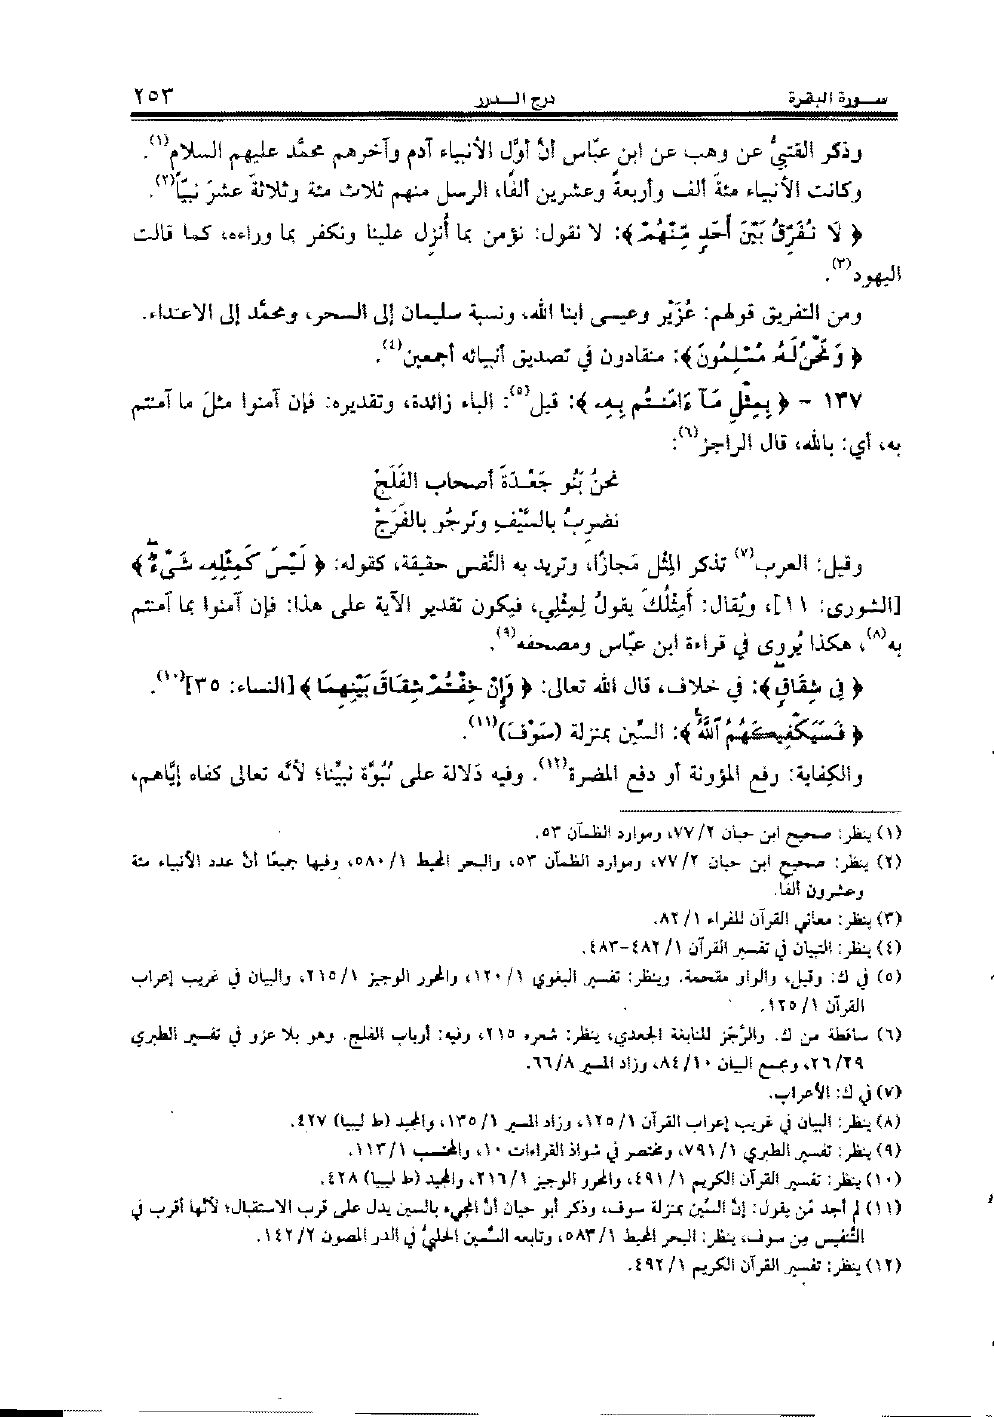 سورة البقرة درج الدرر ٢٥٣
وذكر القتبيُّ عن وهب عن ابن عبّاس أنَّ أوَّل الأنبياء آدم وآخرهم محمَّد عليهم السلام(١).
وكانت الأنبياء مئةَ ألف وأربعةً وعشرين ألفًا، الرسل منهم ثلاث مئة وثلاثةَ عشرَ نبيّاً(٢).
﴿ لَا نُفَرِّقُ بَيْنَ أَحَدٍ مِّنْهُمْ ﴾: لا نقول: نؤمن بما أُنزل علينا ونكفر بما وراءه، كما قالت
اليهود(٣).
ومن التفريق قولهم: عُزَيْر وعيسى ابنا الله، ونسبة سليمان إلى السحر، ومحمَّد إلى الاعتداء.
﴿ وَنَحْنُ لَهُ مُسْلِمُونَ ﴾: منقادون في تصديق أنبيائه أجمعين(٤).
١٣٧ - ﴿ بِمِثْلِ مَآ ءَامَنتُم بِهِ ﴾: قيل(٥): الباء زائدة، وتقديره: فإن آمنوا مثلَ ما آمنتم
به، أي: بالله، قال الراجز(٦):
نحنُ بَنُو جَعْدَةَ أصحاب الفَلَجْ
نضربُ بالسَّيْفِ ونَرجُو بالفَرَجْ
وقيل: العرب(٧) تذكر المِثْل مَجازًا، وتريد به النَّفس حقيقة، كقوله: ﴿ لَيْسَ كَمِثْلِهِ شَيْءٌ ﴾
[الشورى: ١١]، ويُقال: أَمِثْلُكَ يقولُ لِمِثْلِي، فيكون تقدير الآية على هذا: فإن آمنوا بما آمنتم
به(٨)، هكذا يُروى في قراءة ابن عبّاس ومصحفه(٩).
﴿ فِي شِقَاقٍ ﴾: في خلاف، قال الله تعالى: ﴿ وَإِنْ خِفْتُمْ شِقَاقَ بَيْنِهِمَا ﴾ [النساء: ٣٥](١٠).
﴿ فَسَيَكْفِيكَهُمُ ٱللَّهُ ﴾: السِّين بمنزلة (سَوْفَ)(١١).
والكِفاية: رفع المؤونة أو دفع المضرة(١٢). وفيه دَلالة على نُبُوَّة نبيِّنا؛ لأنَّه تعالى كفاه إيَّاهم،
(١) ينظر: صحيح ابن حبان ٢/ ٧٧، وموارد الظمآن ٥٣.
(٢) ينظر: صحيح ابن حبان ٢/ ٧٧، وموارد الظمآن ٥٣، والبحر المحيط ١/ ٥٨٠، وفيها جميعًا أنَّ عدد الأنبياء مئة
وعشرون ألفًا.
(٣) ينظر: معاني القرآن للفراء ١/ ٨٢.
(٤) ينظر: التبيان في تفسير القرآن ١/ ٤٨٢-٤٨٣.
(٥) في ك: وقيل، والواو مقحمة. وينظر: تفسير البغوي ١/ ١٢٠، والمحرر الوجيز ١/ ٢١٥، والبيان في غريب إعراب
القرآن ١/ ١٢٥.
(٦) ساقطة من ك. والرَّجَز للنابغة الجعدي، ينظر: شعره ٢١٥، وفيه: أرباب الفلج. وهو بلا عزو في تفسير الطبري
٢٩/ ٢٦، ومجمع البيان ١٠/ ٨٤، وزاد المسير ٨/ ٦٦.
(٧) في ك: الأعراب.
(٨) ينظر: البيان في غريب إعراب القرآن ١/ ١٢٥، وزاد المسير ١/ ١٣٥، والمجيد (ط ليبيا) ٤٢٧.
(٩) ينظر: تفسير الطبري ١/ ٧٩١، ومختصر في شواذ القراءات ١٠، والمحتسب ١/ ١١٣.
(١٠) ينظر: تفسير القرآن الكريم ١/ ٤٩١، والمحرر الوجيز ١/ ٢١٦، والمجيد (ط ليبيا) ٤٢٨.
(١١) لم أجد مَن يقول: إنَّ السِّين بمنزلة سوف، وذكر أبو حيان أنَّ المجيء بالسين يدل على قرب الاستقبال؛ لأنَّها أقرب في
التَّنفيس مِن سوف، ينظر: البحر المحيط ١/ ٥٨٣، وتابعه السَّمين الحلبيُّ في الدر المصون ٢/ ١٤٢.
(١٢) ينظر: تفسير القرآن الكريم ١/ ٤٩٢.